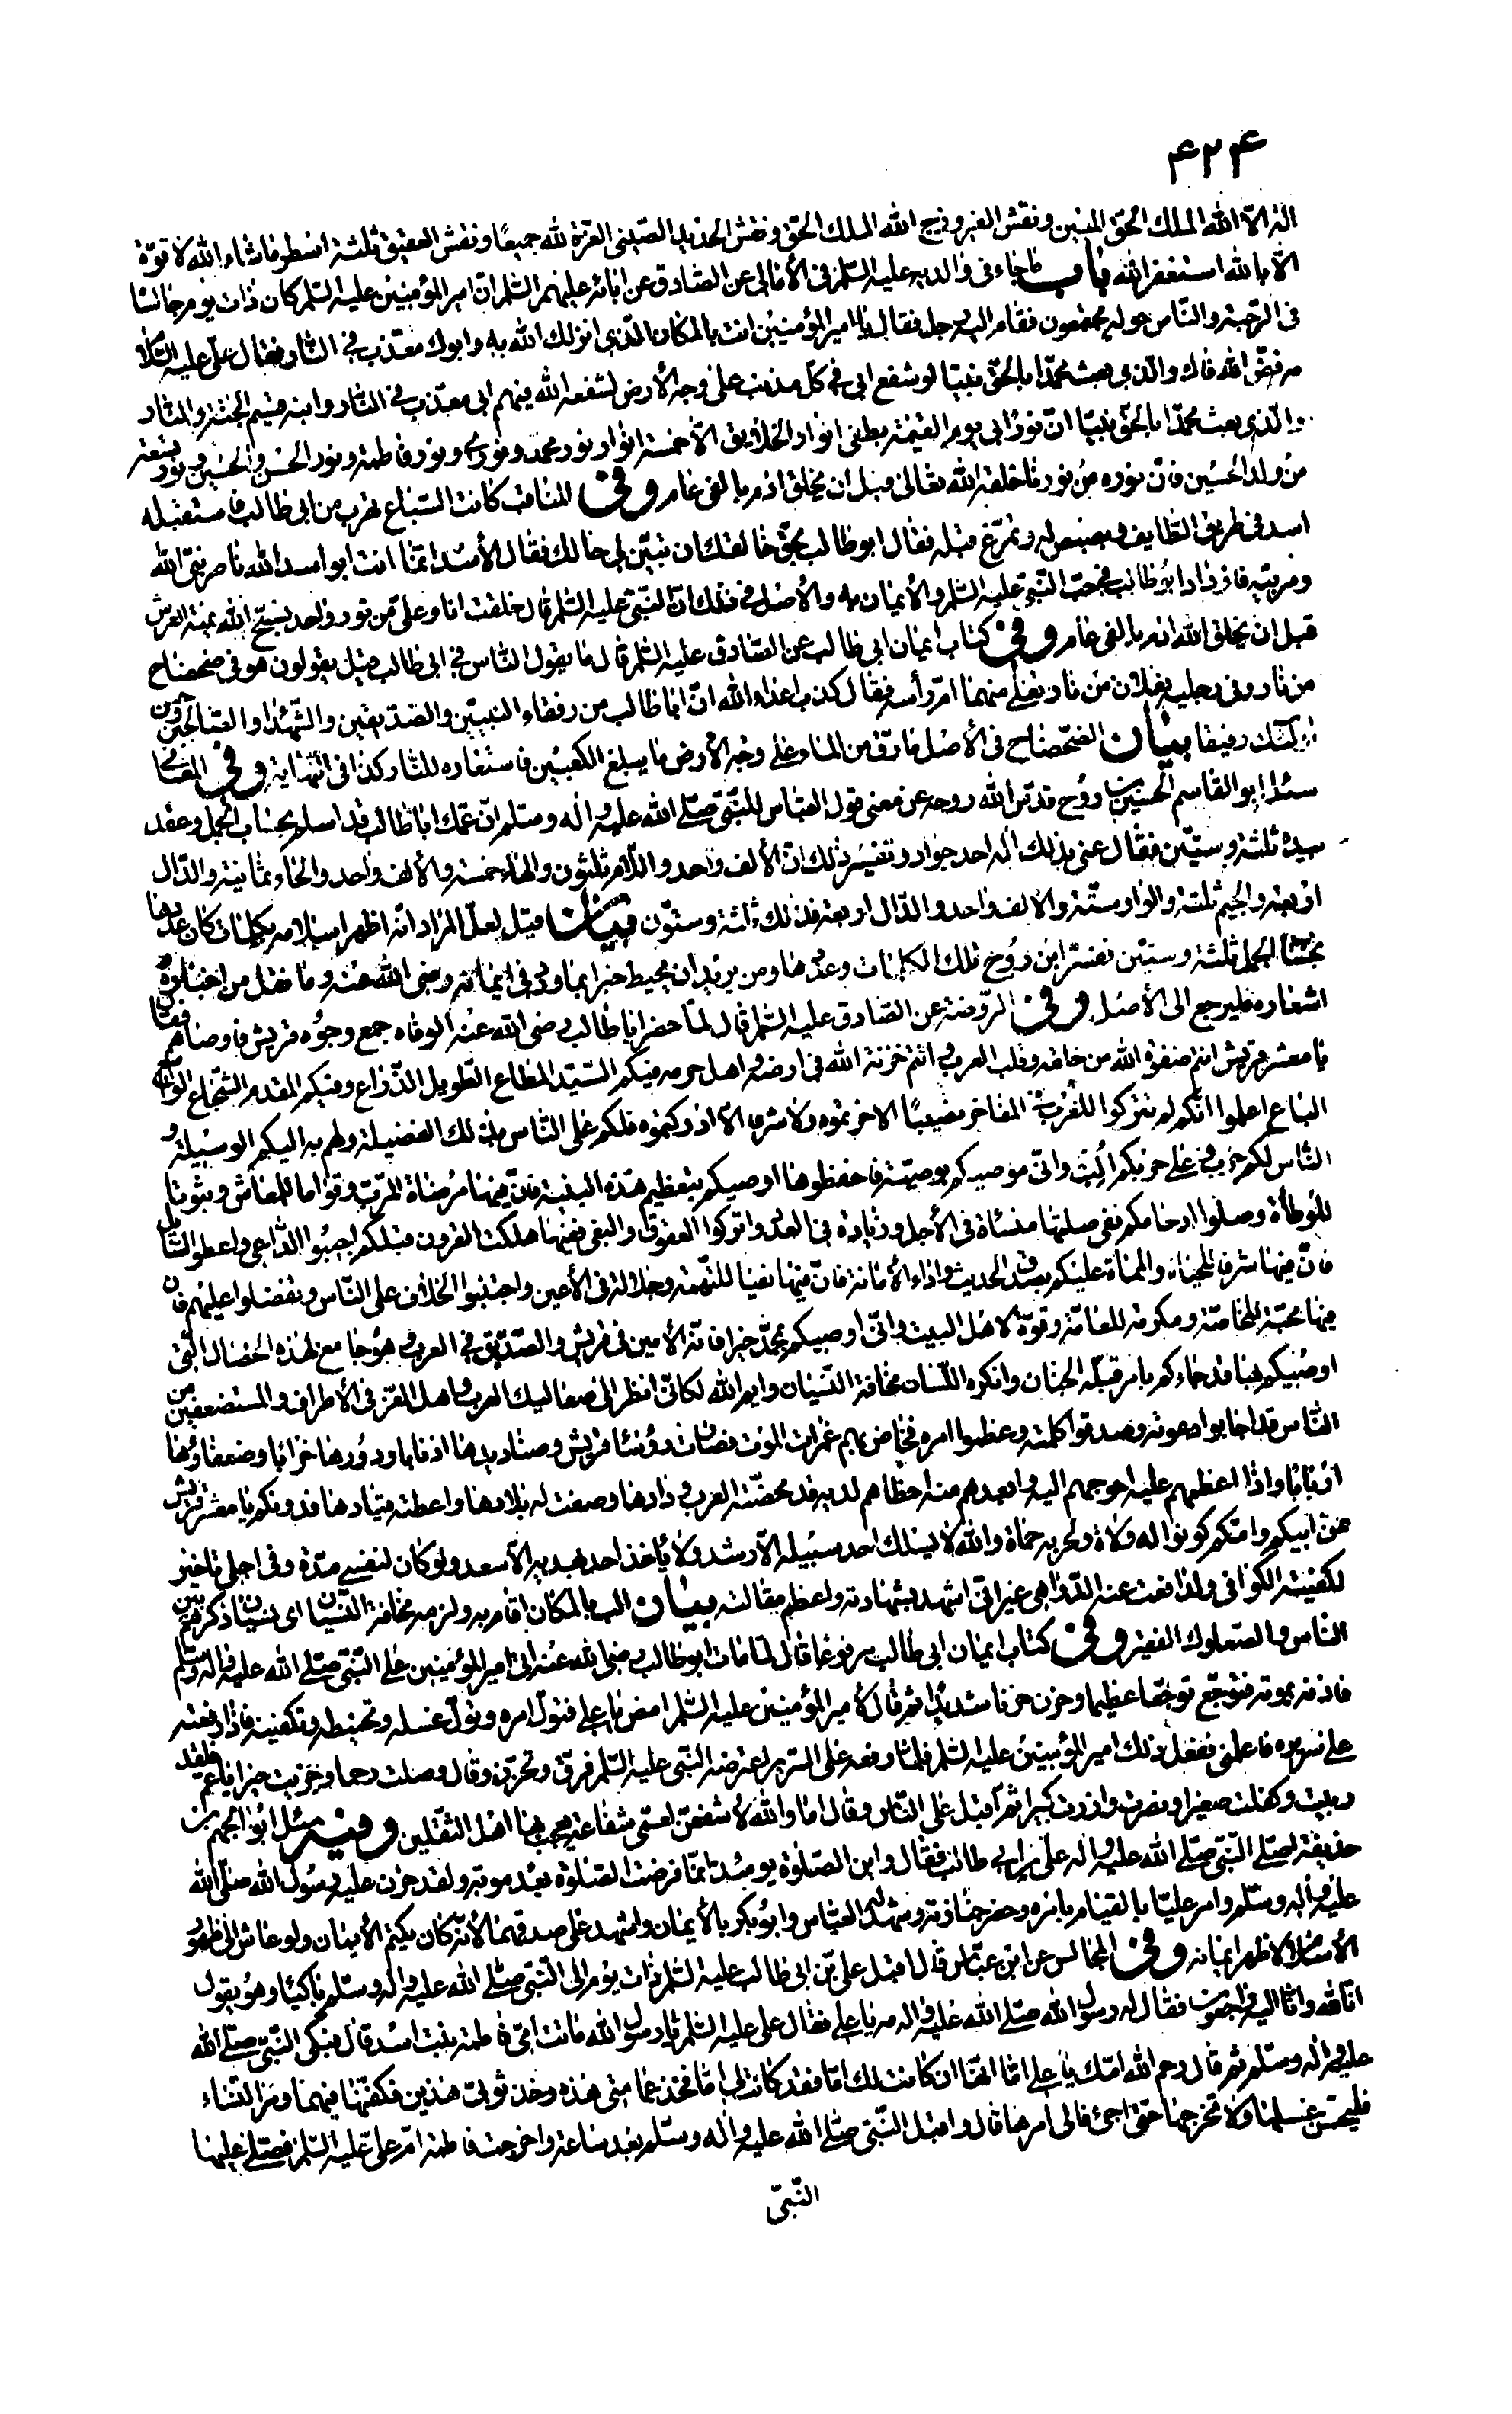 ۴۲۴
اله الا الله الملك الحق المبين ونقش الفيروزج الله الملك الحق ونقش الحديد الصيني العزة لله جميعا ونقش العقيق ثلثة اسطر ماشاء الله لا قوة
الا بالله استغفر الله باب ما جاء في والديه عليه السلم في الأمالي عن الصادق عن ابائه عليهم السلم ان امير المؤمنين عليه السلم كان ذات يوم جالسا
في الرحبة والناس حوله مجتمعون فقام اليه رجل فقال يا امير المؤمنين انت بالمكان الذي انزلك الله به وابوك معذب في النار فقال علي عليه السلام
مه فض الله فاك والذي بعث محمدا بالحق نبيا لو شفع ابي في كل مذنب على وجه الأرض لشفعه الله فيهم ابي معذب في النار وابنه قسيم الجنة والنار
والذي بعث محمدا بالحق نبيا ان نور ابي يوم القيمة يطفي انوار الخلايق الا خمسة انوار نور محمد ونوري ونور فاطمة ونور الحسن والحسين ونور تسعة
من ولد الحسين فان نوره من نورنا خلقه الله تعالى قبل ان يخلق ادم بالفي عام وفي المناقب كانت السباع تهرب من ابي طالب فاستقبله
اسد في طريق الطايف وبصبص له وتمرغ قبله فقال ابو طالب بحق خالقك ان تبين لي حالك فقال الأسد انما انت ابو اسد الله ناصر نبي الله
ومربيه فازداد ابو طالب في حب النبي عليه السلم والأيمان به والأصل في ذلك ان النبي عليه السلم قال خلقت انا وعلي من نور واحد نسبح الله يمنة العرش
قبل ان يخلق الله ادم بالفي عام وفي كتاب ايمان ابي طالب عن الصادق عليه السلم قال ما يقول الناس في ابي طالب قيل يقولون هو في ضحضاح
من نار وفي رجليه نعلان من نار تغلي منهما ام رأسه فقال كذب اعداء الله ان ابا طالب من رفقاء النبيين والصديقين والشهداء والصالحين وحسن
اولئك رفيقا بيان الضحضاح في الأصل ما رق من الماء على وجه الأرض ما يبلغ الكعبين فاستعاره للنار كذا في النهاية وفي المعاني
سئل ابو القاسم الحسين بن روح قدس الله روحه عن معنى قول العباس للنبي صلى الله عليه واله وسلم ان عمك ابا طالب قد اسلم بحساب الجمل وعقد
بيده ثلثة وستين فقال عنى بذلك اله احد جواد وتفسير ذلك ان الألف واحد واللام ثلثون والهاء خمسة والألف واحد والحاء ثمانية والدال
اربعة والجيم ثلثة والواو ستة والالف واحد والدال اربعة فذلك ثلثة وستون بيان قيل لعل المراد انه اظهر اسلامه بكلمات كان عددها
بحساب الجمل ثلثة وستين ففسر ابن روح تلك الكلمات وعددها ومن يريد ان يحيط خبرا بما ورد في ايمانه رضي الله عنه وما نقل من اخباره و
اشعاره فليرجع الى الأصل وفي الروضة عن الصادق عليه السلم قال لما حضر ابا طالب رضي الله عنه الوفاة جمع وجوه قريش فاوصاهم فقال
يا معشر قريش انتم صفوة الله من خلقه وقلب العرب وانتم خزنة الله في ارضه واهل حرمه فيكم السيد المطاع الطويل الذراع وفيكم المقدم الشجاع الواسع
الباع اعلموا انكم لم تتركوا للعرب في المفاخر نصيبا الا حزتموه ولا شرفا الا ادركتموه فلكم على الناس بذلك الفضيلة ولهم به اليكم الوسيلة و
الناس لكم حرب وعلى حربكم الب واني موصيكم بوصية فاحفظوها اوصيكم بتعظيم هذه البنية فان فيها مرضاة للرب وقواما للمعاش وثبوتا
للوطأة وصلوا ارحامكم ففي صلتها منساة في الأجل وزيادة في العدد واتركوا العقوق والبغي ففيهما هلكت القرون قبلكم اجيبوا الداعي واعطوا السائل
فان فيها شرفا للحياة والممات عليكم بصدق الحديث واداء الأمانة فان فيهما نفيا للتهمة وجلالة في الأعين واجتنبوا الخلاف على الناس وتفضلوا عليهم فان
فيها محبة للخاصة ومكرمة للعامة وقوة لاهل البيت واني اوصيكم بمحمد خيرا فانه الأمين في قريش والصديق في العرب وهو جامع لهذه الخصال التي
اوصيكم بها قد جاءكم بامر قبله الجنان وانكره اللسان مخافة الشنان وايم الله لكاني انظر الى صعاليك العرب واهل العز في الأطراف والمستضعفين من
الناس قد اجابوا دعوته وصدقوا كلمته وعظموا امره فخاض بهم غمرات الموت فصارت رؤساء قريش وصناديدها اذنابا ودورها خرابا وضعفاؤها
اربابا واذا اعظمهم عليه احوجهم اليه وابعدهم منه احظاهم لديه قد محضته العرب ودادها وصفت له بلادها واعطته قيادها فدونكم يا معشر قريش
من ابيكم وامكم كونوا له ولاة ولحربه حماة والله لا يسلك احد سبيله الا رشد ولا يأخذ احد بهديه الا سعد ولو كان لنفسي مدة وفي اجلي تاخير
لكفيته الكوافي ولدافعت عنه الدواهي غير اني اشهد بشهادته واعظم مقالته بيان الب بالمكان اقام به ولزمه مخافة الشنان اي لسان ذكرهم بين
الناس والصعلوك الفقير وفي كتاب ايمان ابي طالب مرفوعا قال لما مات ابو طالب رضي الله عنه اتى امير المؤمنين على النبي صلى الله عليه واله وسلم
فاذنه بموته فتوجع توجعا عظيما وحزن حزنا شديدا ثم قال لأمير المؤمنين عليه السلم امض يا علي فتول امره وتول غسله وتحنيطه وتكفينه فاذا رفعته
على سريره فاعلمني ففعل ذلك امير المؤمنين عليه السلم فلما رفعه على السرير اعترضه النبي عليه السلم فرق وتحزن وقال وصلت رحما وجزيت خيرا يا عم فلقد
ربيت وكفلت صغيرا ونصرت وازرت كبيرا ثم اقبل على الناس وقال اما والله لأشفعن لعمي شفاعة يعجب بها اهل الثقلين وفيه سئل ابو الجهم بن
حذيفة اصلى النبي صلى الله عليه واله على ابي طالب فقال واين الصلوة يومئذ انما فرضت الصلوة بعد موته ولقد حزن عليه رسول الله صلى الله
عليه واله وسلم وامر عليا بالقيام بامره وحضر جنازته وشهد له العباس وابو بكر بالأيمان واشهد على صدقهما لأنه كان يكتم الأيمان ولو عاش الى ظهور
الأسلام لاظهر ايمانه وفي المجالس عن ابن عباس قال اقبل علي بن ابي طالب عليه السلم ذات يوم الى النبي صلى الله عليه واله وسلم باكيا وهو يقول
انا لله وانا اليه راجعون فقال له رسول الله صلى الله عليه واله مه يا علي فقال علي عليه السلم يا رسول الله ماتت امي فاطمة بنت اسد قال فبكى النبي صلى الله
عليه واله وسلم ثم قال رحم الله امك يا علي اما انها ان كانت لك اما فقد كانت لي اما فخذ عمامتي هذه وخذ ثوبي هذين فكفنها فيهما ومر النساء
فليحسن غسلها ولا تخرجها حتى اجئ فالي امرها قال واقبل النبي صلى الله عليه واله وسلم بعد ساعة واخرجت فاطمة ام علي عليه السلم فصلى عليها
النبي